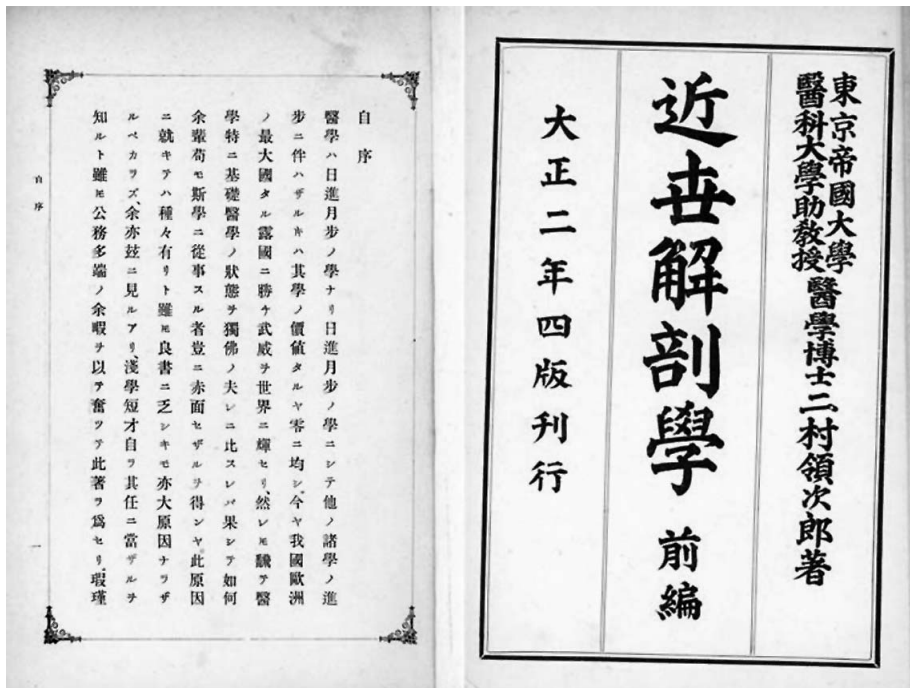 東京帝國大學
醫科大學助教授醫學博士二村領次郎著
近世解剖學 前編
大正二年四版刊行
自序
醫學ハ日進月步ノ學ナリ日進月步ノ學ニシテ他ノ諸學ノ進
步ニ伴ハザルキハ其學ノ價値タルヤ零ニ均シ、今ヤ我國歐洲
ノ最大國タル露國ニ勝チ武威ヲ世界ニ輝セリ、然レ𪜈飜テ醫
學特ニ基礎醫學ノ狀態ヲ獨佛ノ夫レニ比スレバ果シテ如何
余輩苟モ斯學ニ從事スル者豈ニ赤面セザルヲ得ンヤ此原因
ニ就キテハ種々有リト雖𪜈良書ニ乏シキモ亦大原因ナラザ
ルベカラズ、余亦玆ニ見ルアリ、淺學短才自ラ其任ニ當ザルヲ
知ルト雖𪜈公務多端ノ余暇ヲ以テ奮ツテ此著ヲ爲セリ、瑕瑾
自序
一